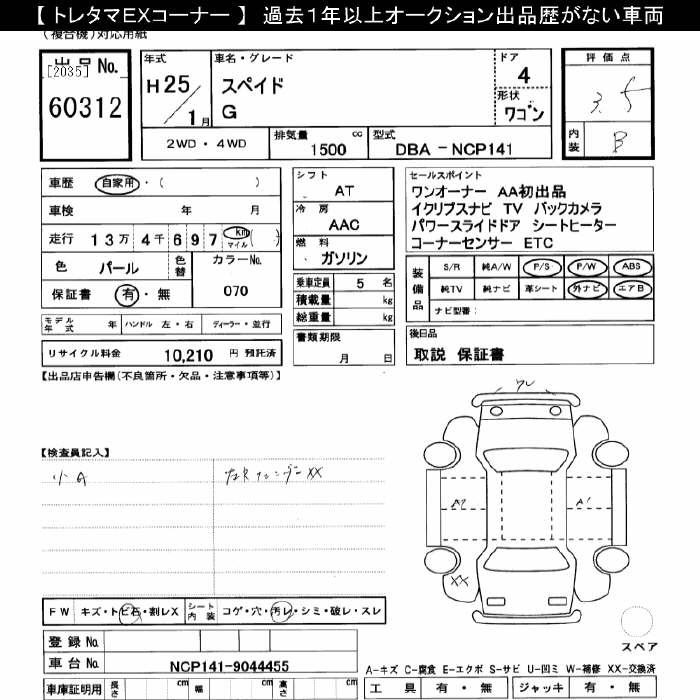 【 トレタマEXコーナー 】 過去1年以上オークション出品歴がない車両
(複合機)対応用紙
出品 No.
[2035]
60312
年式
H25/1月
車名・グレード
スペイド
G
ドア
4
形状
ワゴン
評価点
3.5
内装
B
2WD・4WD
排気量 1500 cc
型式 DBA-NCP141
車歴 自家用・( )
車検 年 月
走行 13万4千697 km マイル ( )
色 パール
色替
カラーNo. 070
保証書 有・無
シフト
AT
冷房
AAC
燃料
ガソリン
乗車定員 5 名
積載量 kg
総重量 kg
書類期限
月 日
セールスポイント
ワンオーナー AA初出品
イクリプスナビ TV バックカメラ
パワースライドドア シートヒーター
コーナーセンサー ETC
装備品
S/R 純A/W P/S P/W ABS
純TV 純ナビ 革シート 外ナビ エアB
ナビ型番:
モデル年式 年 ハンドル 左・右 ディーラー・並行
リサイクル料金 10,210 円 預託済
後日品
取説 保証書
【出品店申告欄(不良箇所・欠品・注意事項等)】
【検査員記入】
小A
XX
A1
XX
FW キズ・トビ石・割レX
シート内装 コゲ・穴・汚レ・シミ・破レ・スレ
登録No.
車台No. NCP141-9044455
車庫証明用 長さ cm 幅 cm 高さ cm
スペア
A-キズ C-腐食 E-エクボ S-サビ U-凹ミ W-補修 XX-交換済
工具 有・無 ジャッキ 有・無